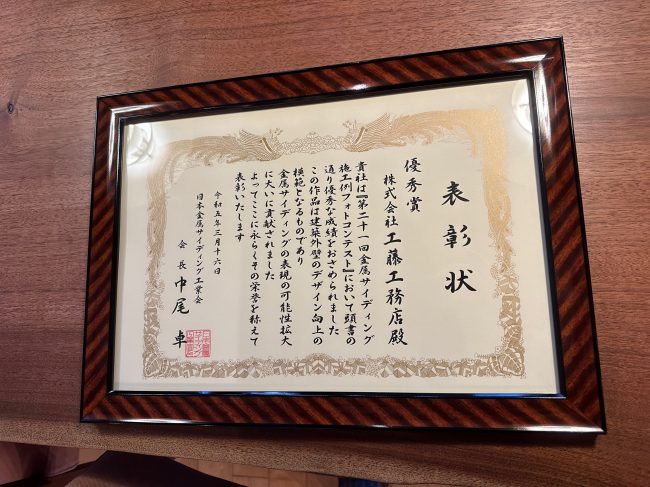 表彰状
優秀賞
株式会社工藤工務店殿
貴社は『第二十一回金属サイディング
施工例フォトコンテスト』において頭書の
通り優秀な成績をおさめられました
この作品は建築外壁のデザイン向上の
模範となるものであり
金属サイディングの表現の可能性拡大
に大いに貢献されました
よってここに永らくその栄誉を称えて
表彰いたします
令和五年三月十六日
日本金属サイディング工業会
会長 中尾 卓